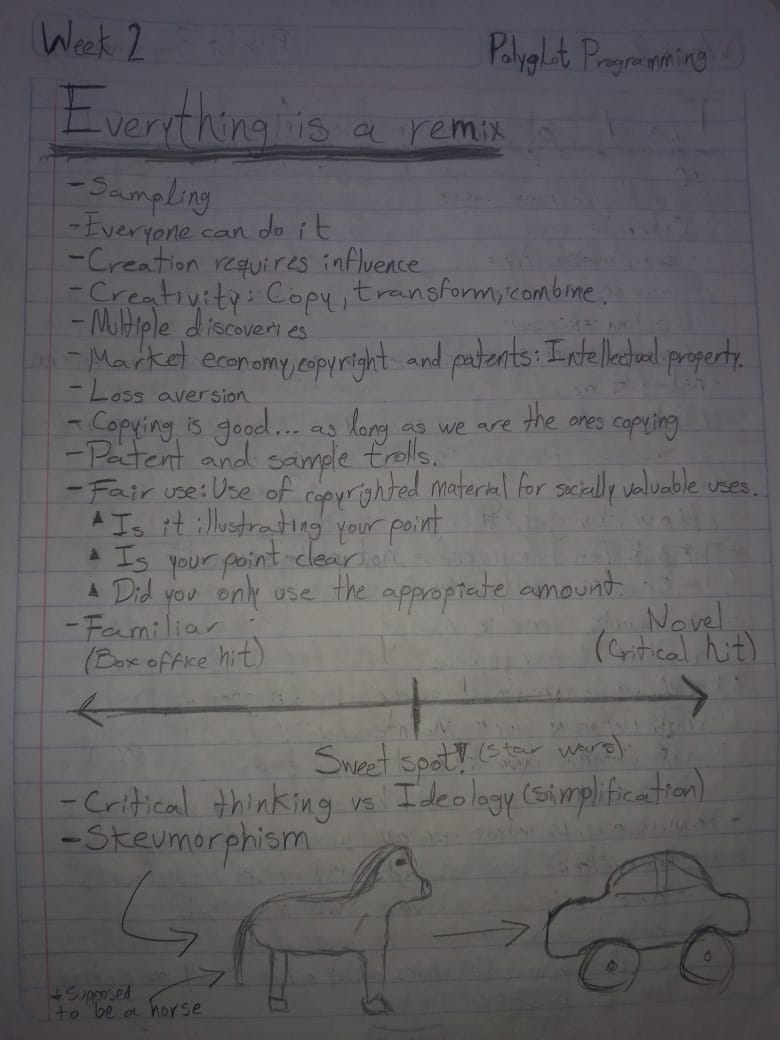 Week 2
Polyglot Programming
Everything is a remix
- Sampling
- Everyone can do it
- Creation requires influence
- Creativity: Copy, transform, combine.
- Multiple discoveries
- Market economy, copyright and patents: Intellectual property.
- Loss aversion
- Copying is good... as long as we are the ones copying
- Patent and sample trolls.
- Fair use: Use of copyrighted material for socially valuable uses.
▲ Is it illustrating your point
▲ Is your point clear
▲ Did you only use the appropiate amount.
- Familiar
(Box office hit)
Novel
(Critical hit)
Sweet spot! (Star wars)
- Critical thinking vs Ideology (simplification)
- Skeumorphism
* Supposed
to be a horse